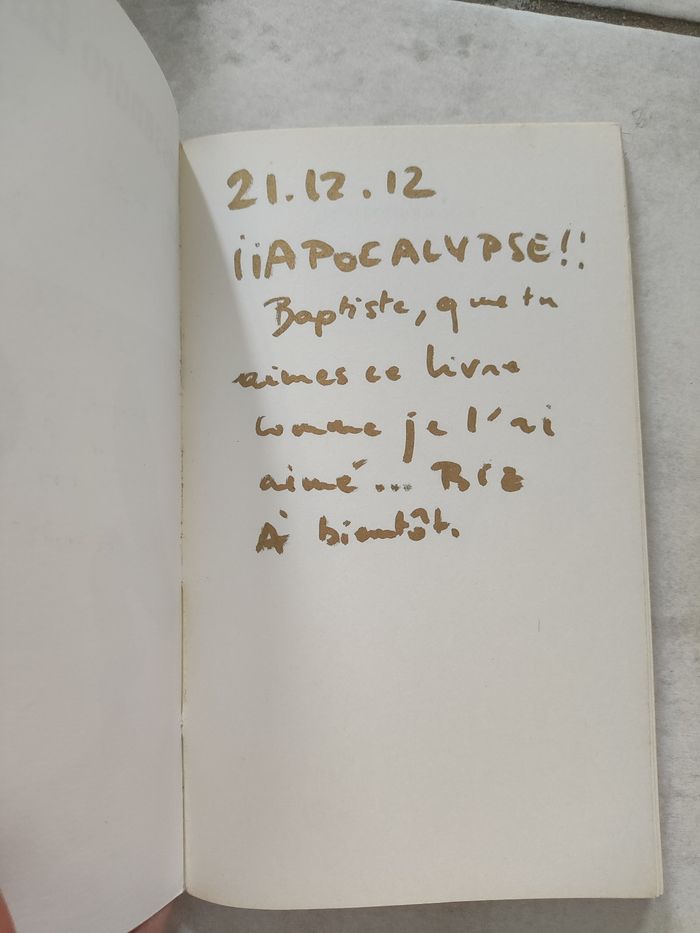 21.12.12
¡¡APOCALYPSE!!
Baptiste, que tu
aimes ce livre
comme je l'ai
aimé... BIZ
À bientôt.